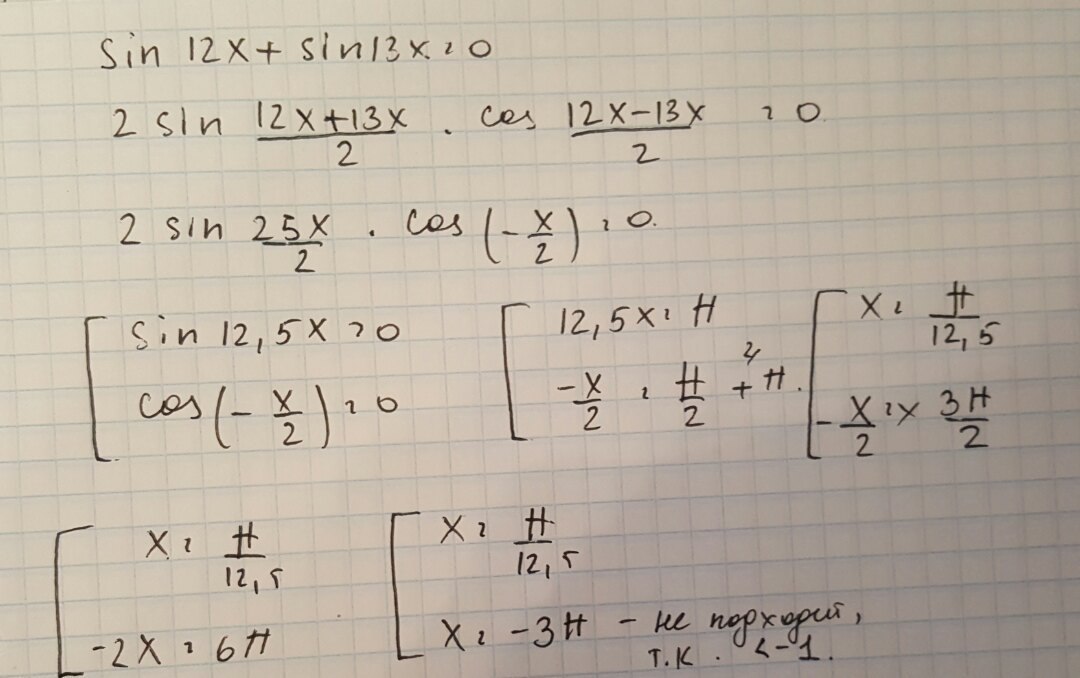 sin 12x + sin 13x = 0
2 sin (12x+13x)/2 · cos (12x−13x)/2 = 0
2 sin 25x/2 · cos (−x/2) = 0.
[ sin 12,5x = 0 [ 12,5x = π [ x = π/12,5
cos (−x/2) = 0 −x/2 = π/2 + π. −x/2 = 3π/2
[ x = π/12,5 [ x = π/12,5
−2x = 6π x = −3π − не подходит,
т.к. <−1.